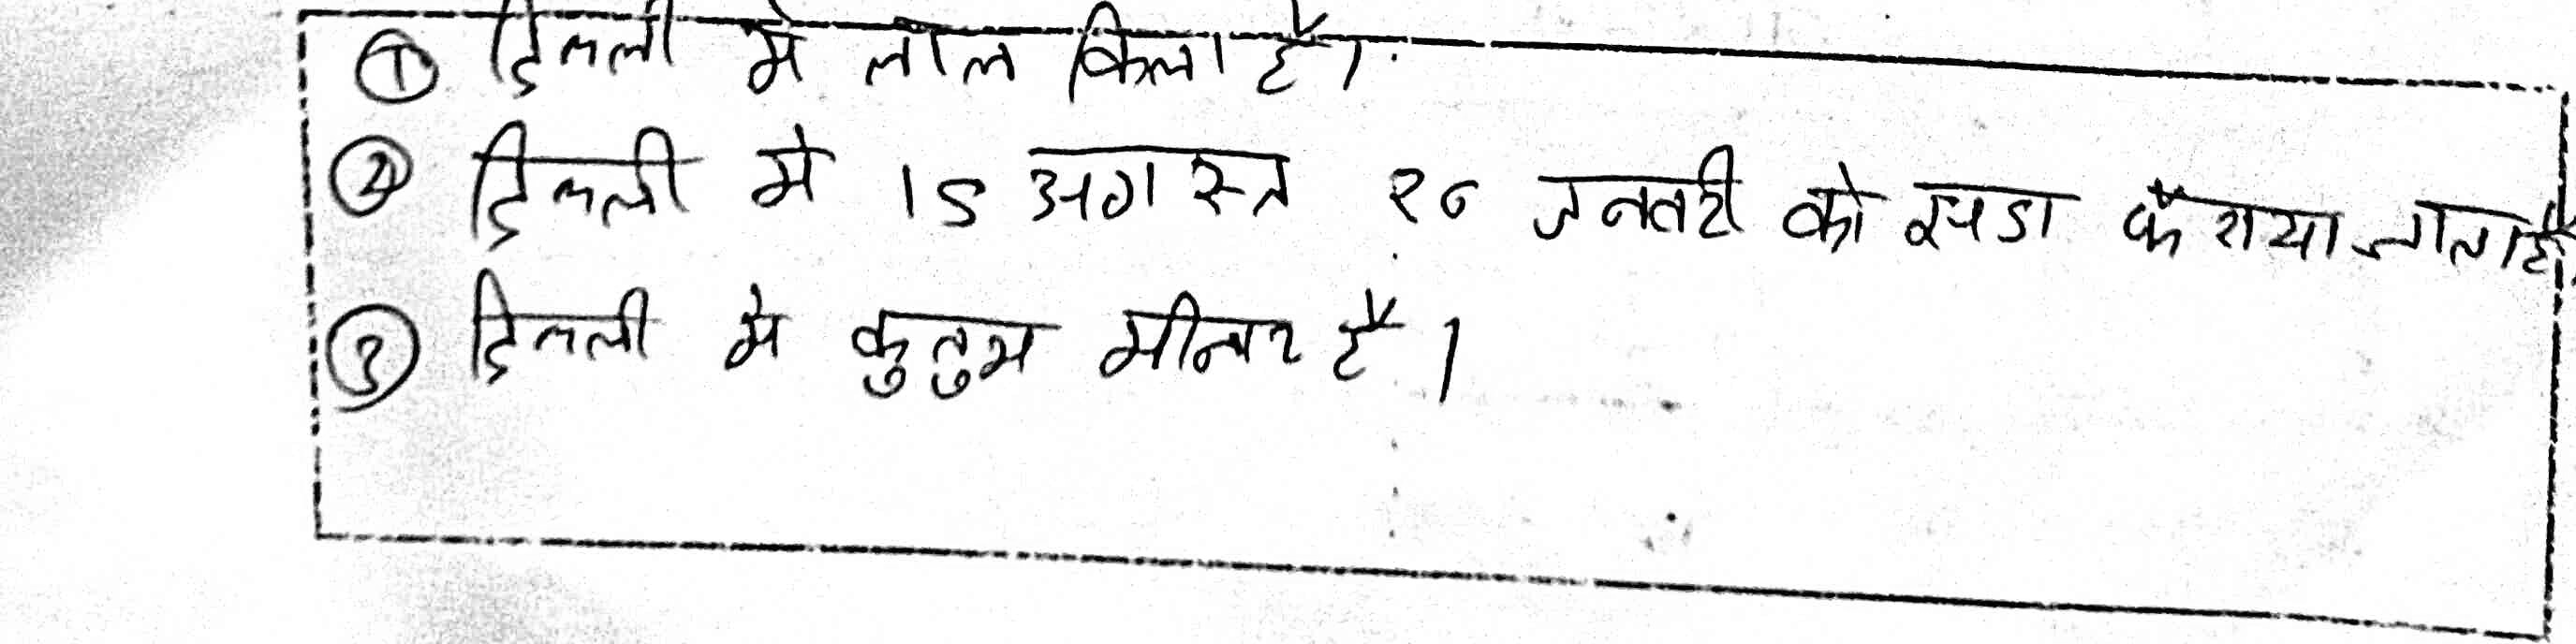 ① दिल्ली मे लाल किला है।
② दिल्ली मे 15 अगस्त २७ जनवरी को झण्डा फैराया जाता है।
③ दिल्ली मे कुतुम मीनार है।